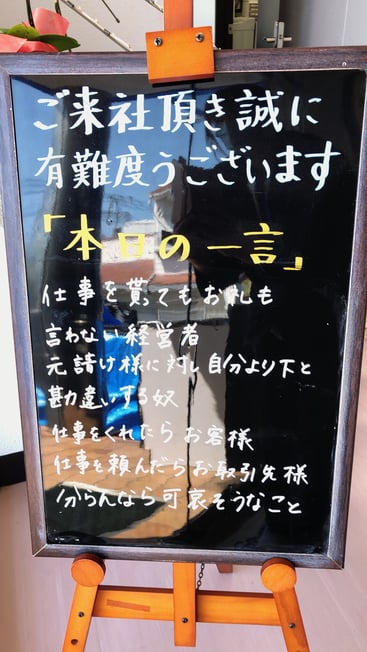 ご来社頂き誠に
有難度うございます
「本日の一言」
仕事を貰ってもお礼も
言わない経営者
元請け様に対し自分より下と
勘違いする奴
仕事をくれたらお客様
仕事を頼んだらお取引先様
分らんなら可哀そうなこと